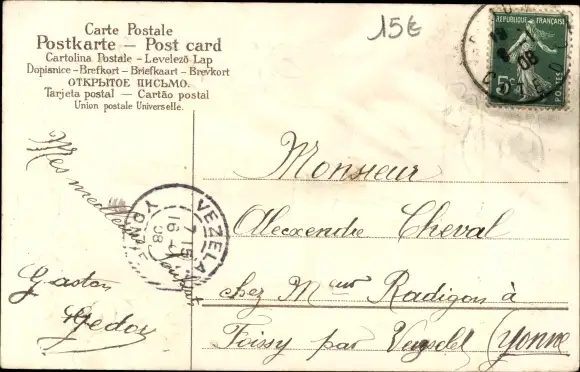 Carte Postale
Postkarte – Post card
Cartolina Postale – Levelező Lap
Dopisnice – Brefkort – Briefkaart – Brevkort
ОТКРЫТОЕ ПИСЬМО.
Tarjeta postal — Cartão postal
Union postale Universelle.
15€
REPUBLIQUE FRANÇAISE
5c
POSTES
08
Monsieur
Alexendre Cheval
chez Meur Radigon à
Foissy par Vezelet (Yonne
Mes meilleurs
Gaston
Gedoy
VEZELAY
7 15
16 4
08
YONNE